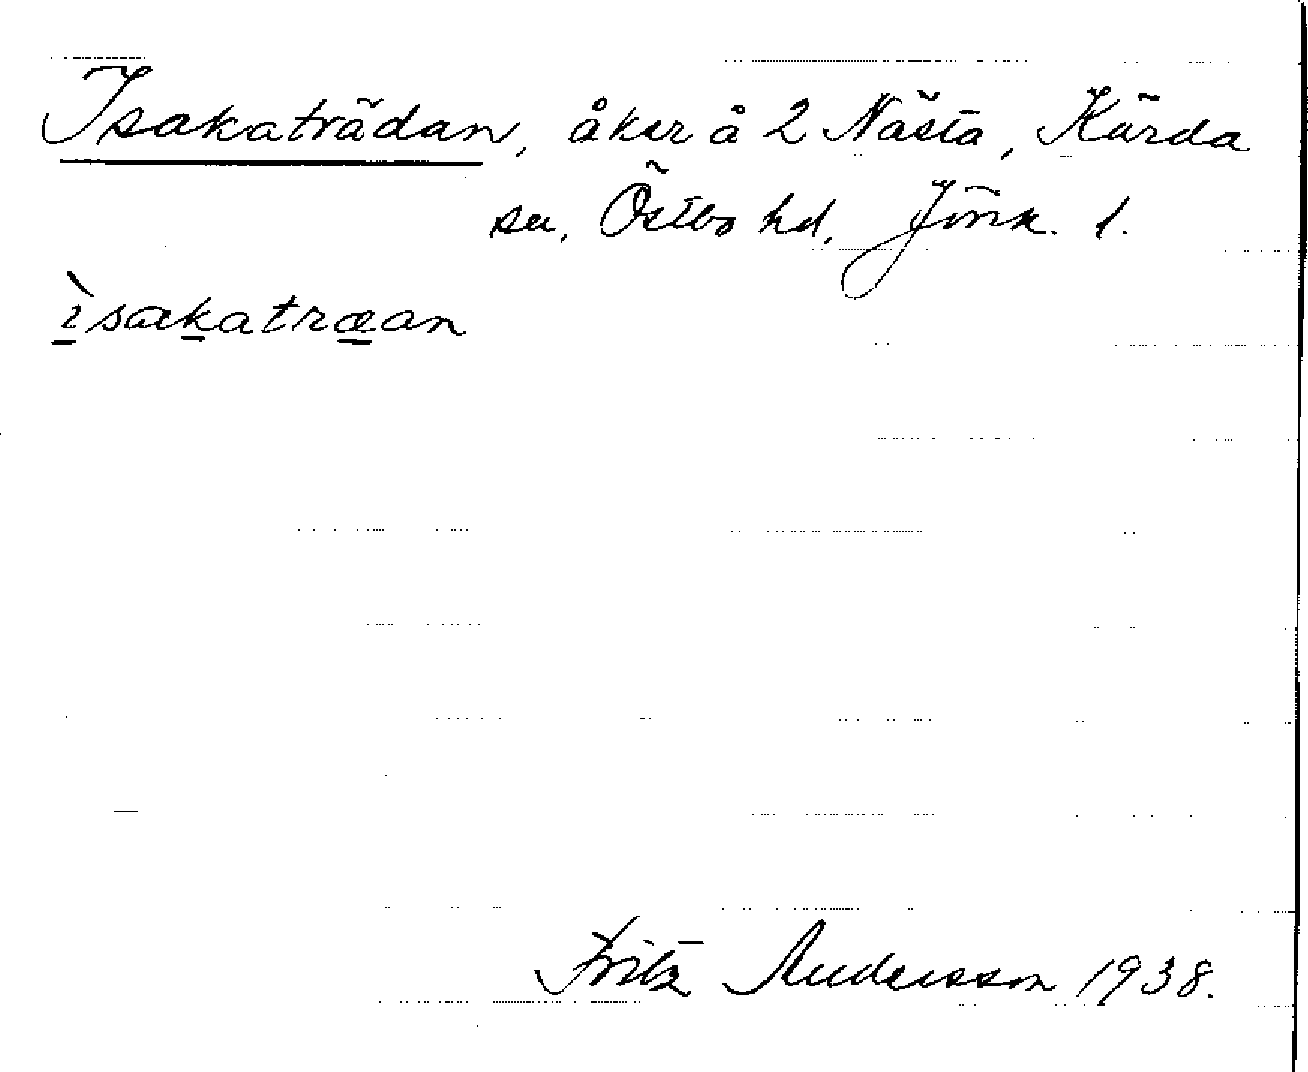 Isakaträdan, åker å 2 Nästa, Kärda
sn, Östbo hd, Jönk. l.
ìsakatræan
Fritz Andersson 1938.